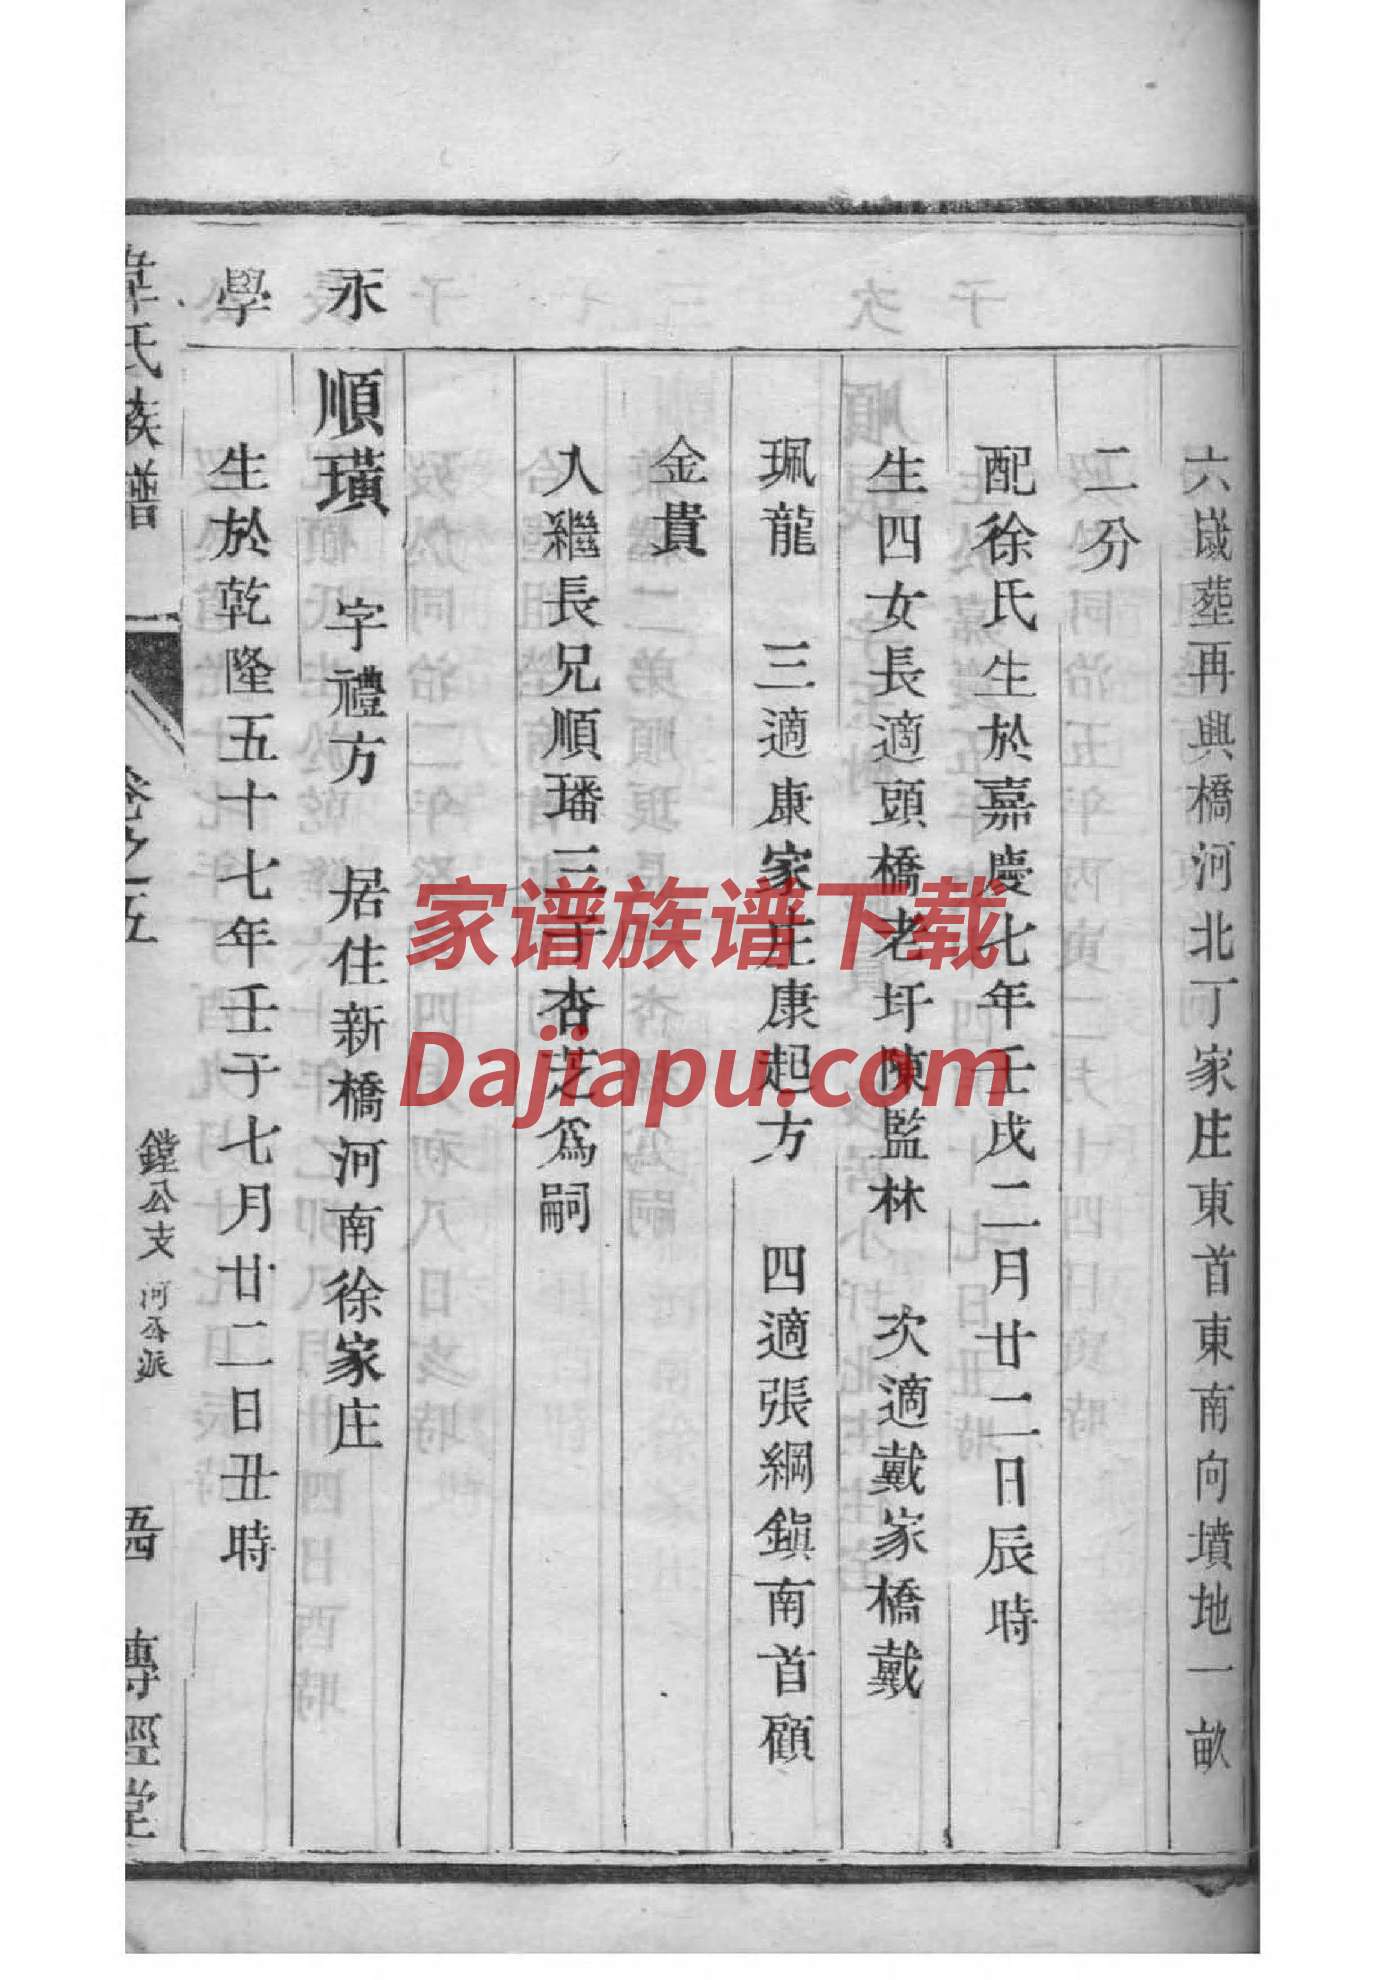 六歲塟再興橋河北丁家庄東首東南向墳地一畝
二分
配徐氏生於嘉慶七年壬戌二月廿二日辰時
生四女長適頭橋老圩陳監林 次適戴家橋戴
珮龍 三適康家庄康起方 四適張綱鎮南首顧
金貴
入繼長兄順璠三子杏芝爲嗣
永 順璜 字禮方 居住新橋河南徐家庄
學 生於乾隆五十七年壬子七月廿二日丑時
韋氏族譜 卷之五 鏜公支 河公派 傳經堂
家谱族谱下载
Dajiapu.com